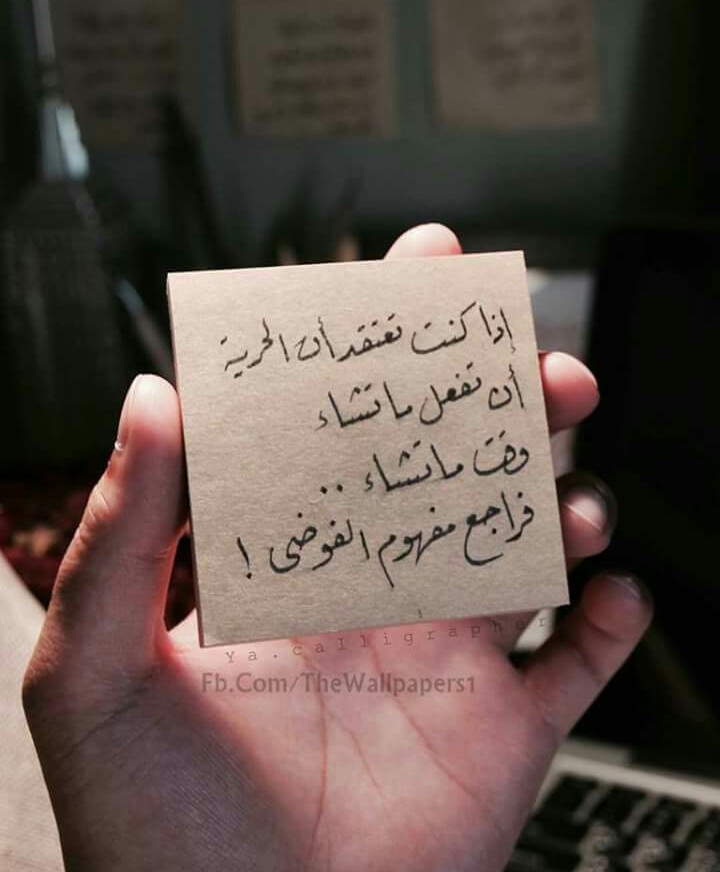 إذا كنت تعتقد أن الحرية
أن تفعل ما تشاء
وقت ما تشاء ..
فراجع مفهوم الفوضى !
Ya.calligrapher
Fb.Com/TheWallpapers1